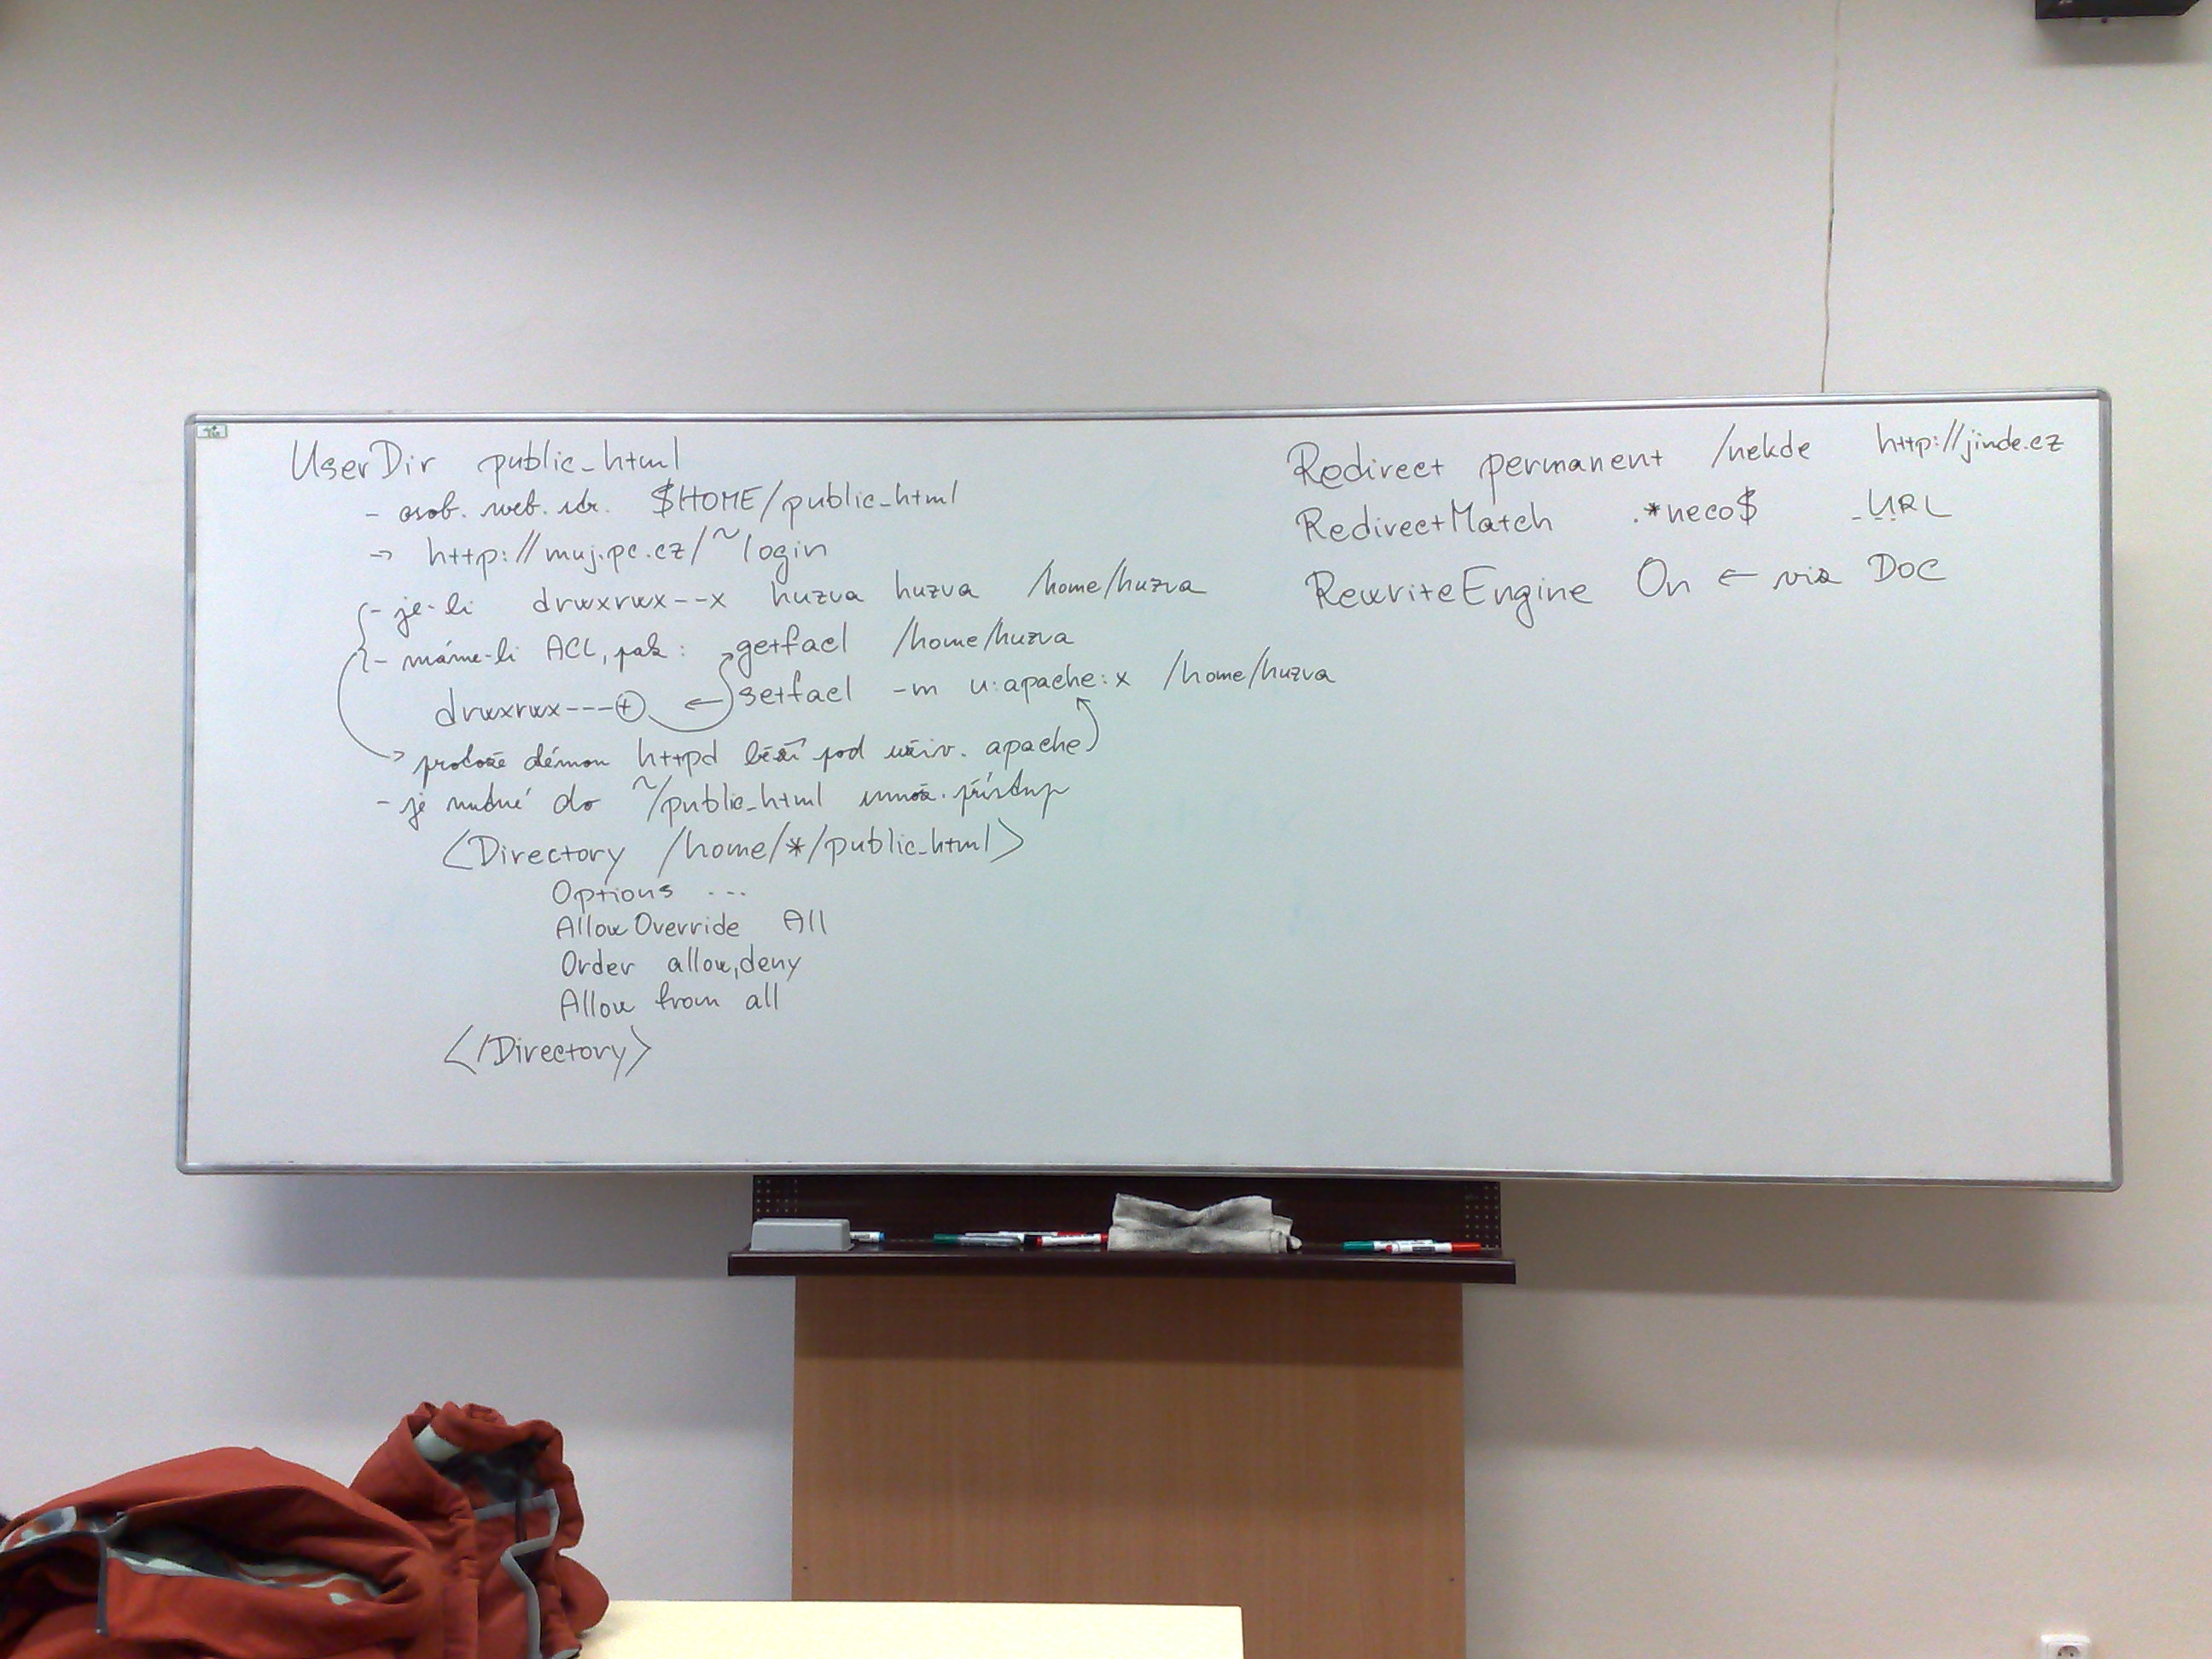 UserDir public_html
- osob. web. str. $HOME/public_html
→ http://muj.pc.cz/~login
- je-li drwxrwx--x huzva huzva /home/huzva
- máme-li ACL, pak: getfacl /home/huzva
drwxrwx---+ ← setfacl -m u:apache:x /home/huzva
→ protože démon httpd běží pod uživ. apache
- je nutné do ~/public_html umož. přístup
<Directory /home/*/public_html>
Options ...
AllowOverride All
Order allow,deny
Allow from all
</Directory>
Redirect permanent /nekde http://jinde.cz
RedirectMatch .*neco$ URL
RewriteEngine On ← viz DOC